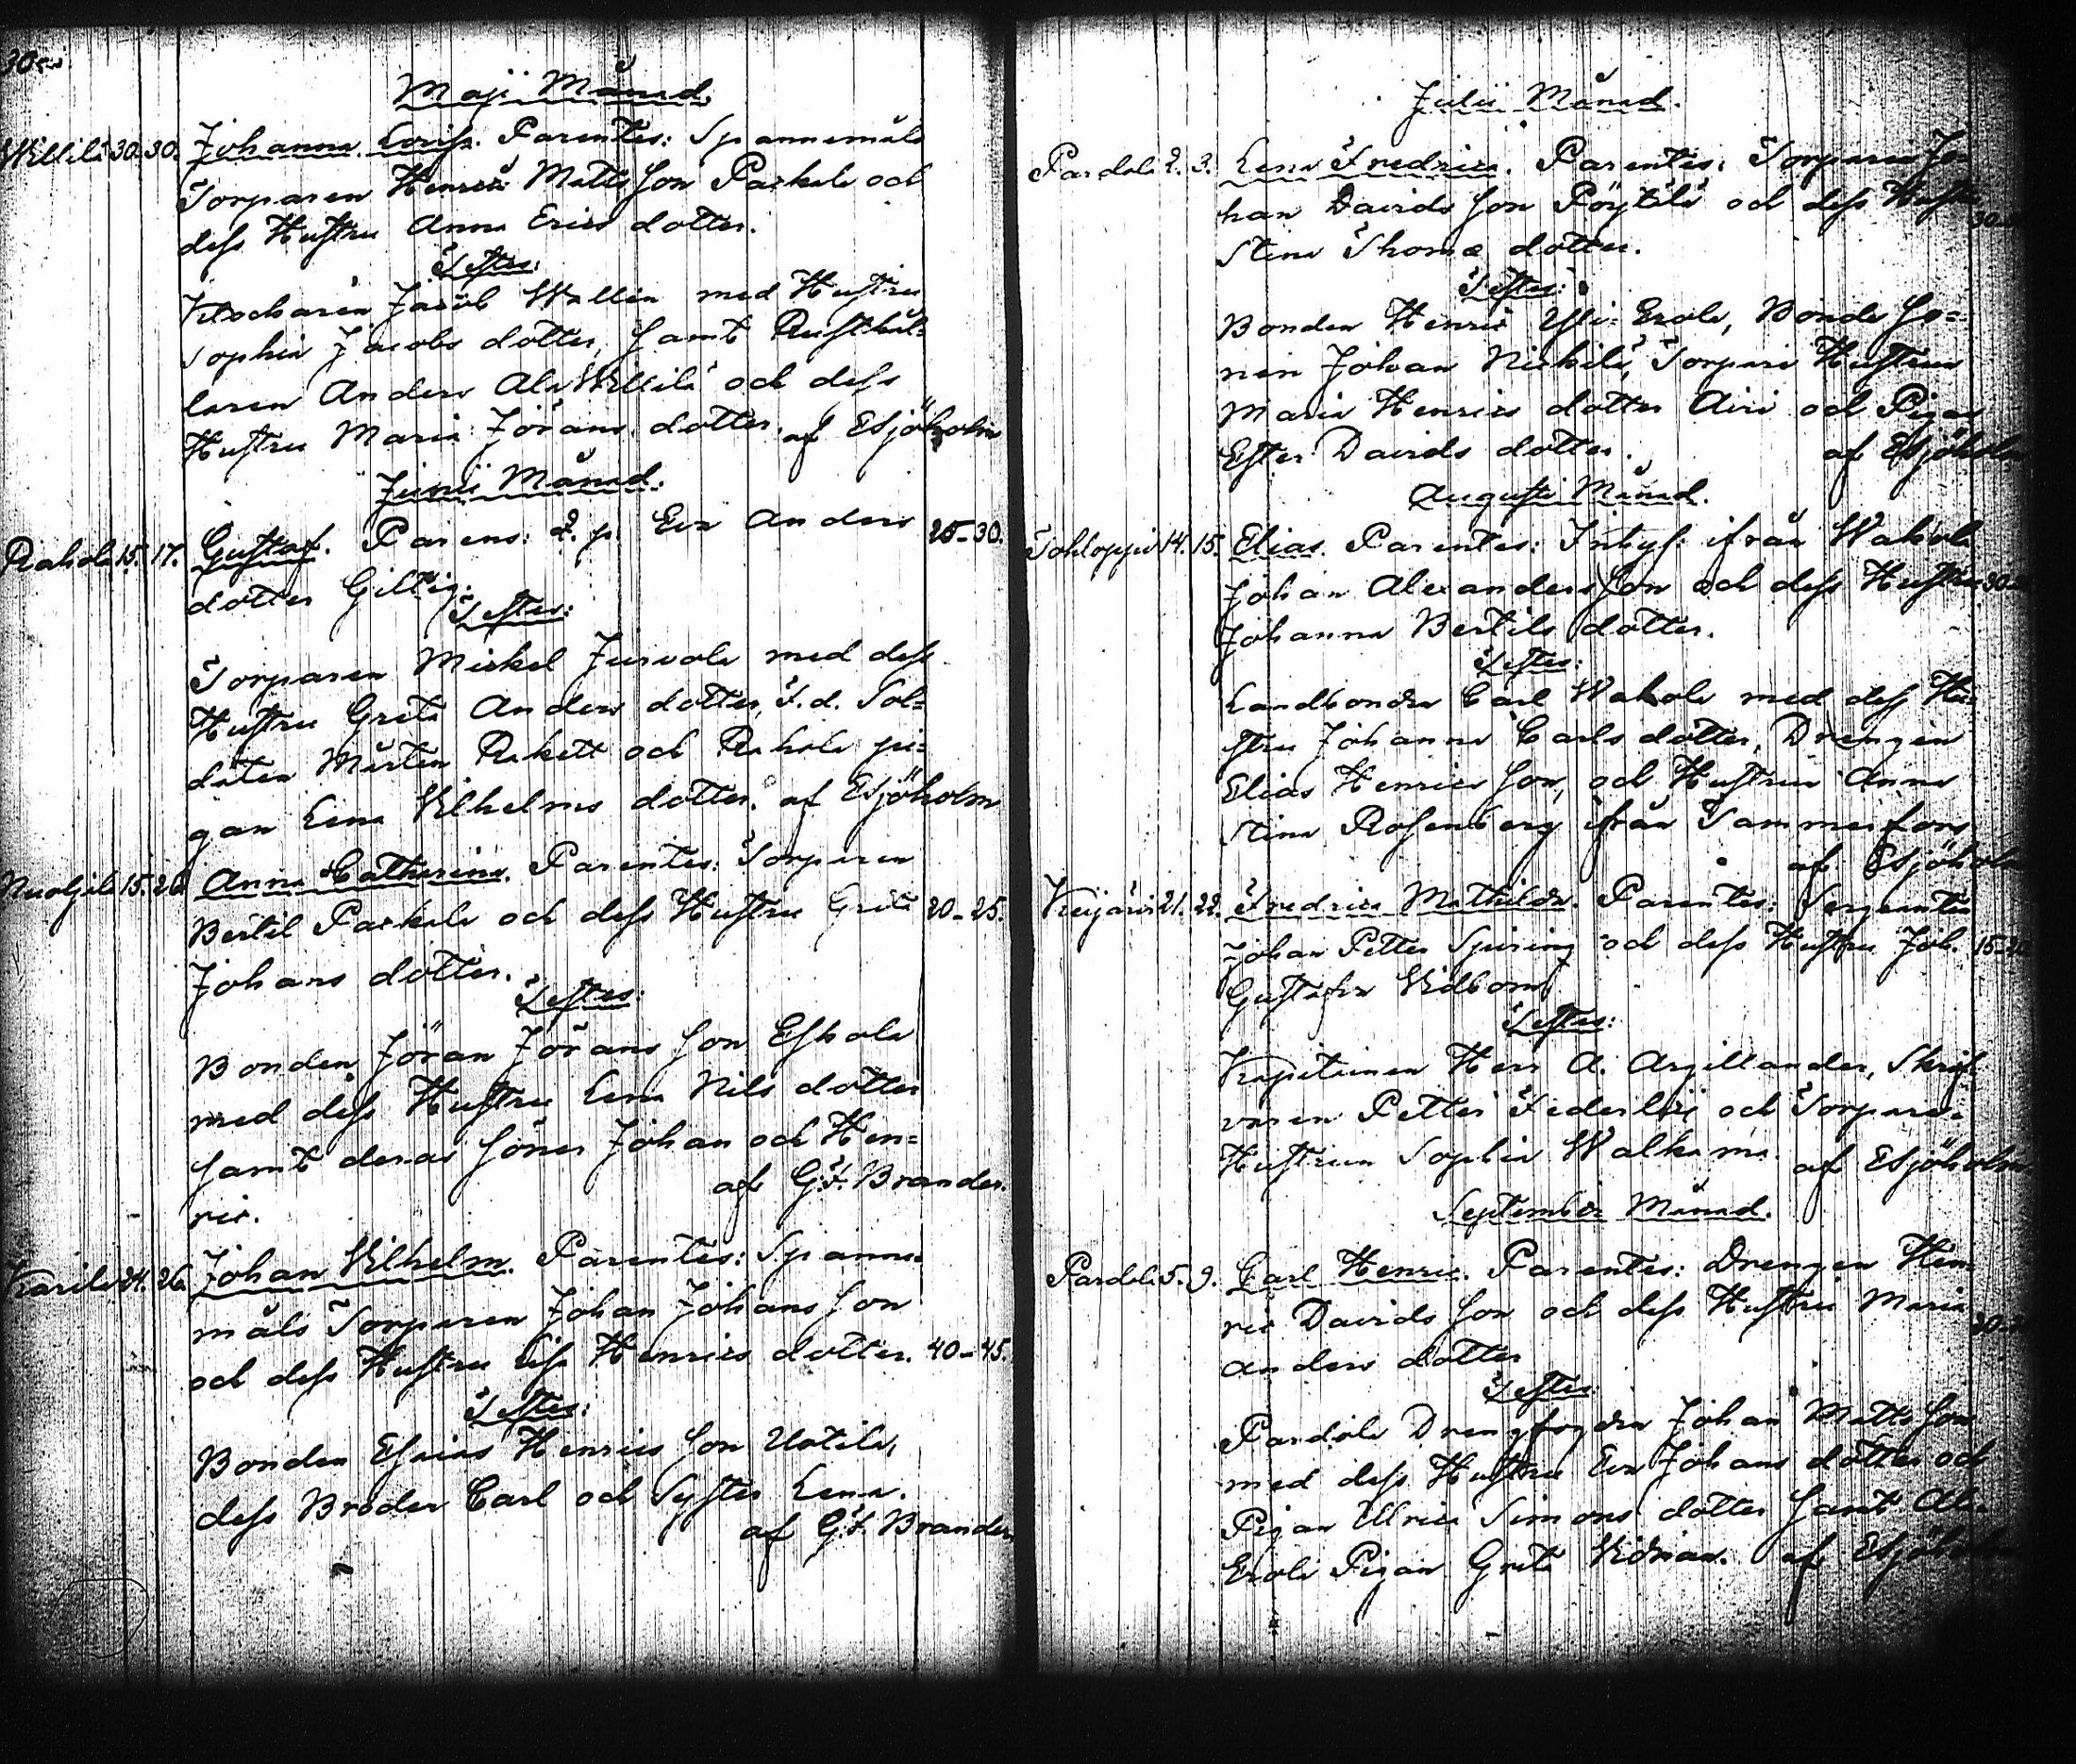 Maji Månad.
Willilä 30. 30. Johanna Lovisa. Parentes: Spannemåls
Torparen Henric Matts Son Parkala och
dess Hustru Anna Erics dotter.
Testes:
Klockaren Jacob Wallin med Hustru
Sophia Jacobs dotter, Samt Rusthål-
laren Anders Ala Willilä och dess
Hustru Maria Jörans dotter. af Esjöholm
Junii Månad.
Rahola 15. 17. Gustaf. Parens: Q. p. Eva Anders 25-30.
dotter Gillig.
Testes:
Torparen Mickel Jurvala med dess
Hustru Greta Anders dotter, F.d. Sol-
daten Mårten Rakett och Rahola pi-
gan Lena Vilhelms dotter. af Esjöholm
Nuoljala 15. 26. Anna Catharina. Parentes: Torparen
Bertil Parkala och dess Hustru Greta 20-25.
Johans dotter.
Testes:
Bonden Jöran Jörans Son Eskola
med dess Hustru Lena Nils dotter
Samt deras Söner Johan och Hen-
ric. af G.F. Brander.
Karila 24. 26. Johan Vilhelm. Parentes: Spanne-
måls Torparen Johan Johans Son
och dess Hustru Lisa Henrics dotter. 40-45.
Testes:
Bonden Esaias Henrics Son Uotila,
dess Broder Carl och Syster Lena.
af G.F. Brander
Julii Månad.
Pardala 2. 3. Lena Fredrica. Parentes: Torparen Jo-
han Davids Son Pöytälä och dess Hustru
Stina Thomæ dotter.
Testes:
Bonden Henric Yli-Erola, Bonde So-
nen Johan Nickilä, Torpare Hustrun
Maria Henrics dotter Airi och Pigan
Ester Davids dotter. af Esjöholm
Augusti Månad.
Tohloppi 14. 15. Elias. Parentes: Inhys: ifrån Wahola
Johan Alexanders Son och dess Hustru
Johanna Bertils dotter.
Testes:
Landbonden Carl Wahola med dess Hu-
stru Johanna Carls dotter, Drengen
Elias Henrics Son, och Hustrun Anna
Stina Rosenberg ifrån Tammerfors
af Esjöholm
21. 22. Fredrica Mathilda. Parentes: Sergeanten
Johan Petter Spiring och dess Hustru Joh.
Gustafva Vidbom
Testes:
Kapitainen Herr A. Argillander, Skrif-
varen Petter Federley och Torpare-
Hustrun Sophia Walkama. af Esjöholm
September Månad.
Pardala 5. 9. Carl Henric. Parentes: Drengen Hen-
ric Davids Son och dess Hustru Maria
Anders dotter
Testes
Pardola Drengfogden Johan Matts Son
med dess Hustru Eva Johans dotter och
Pigan Ulrica Simons dotter Samt Ala-
Erola Pigan Greta af Esjöholm